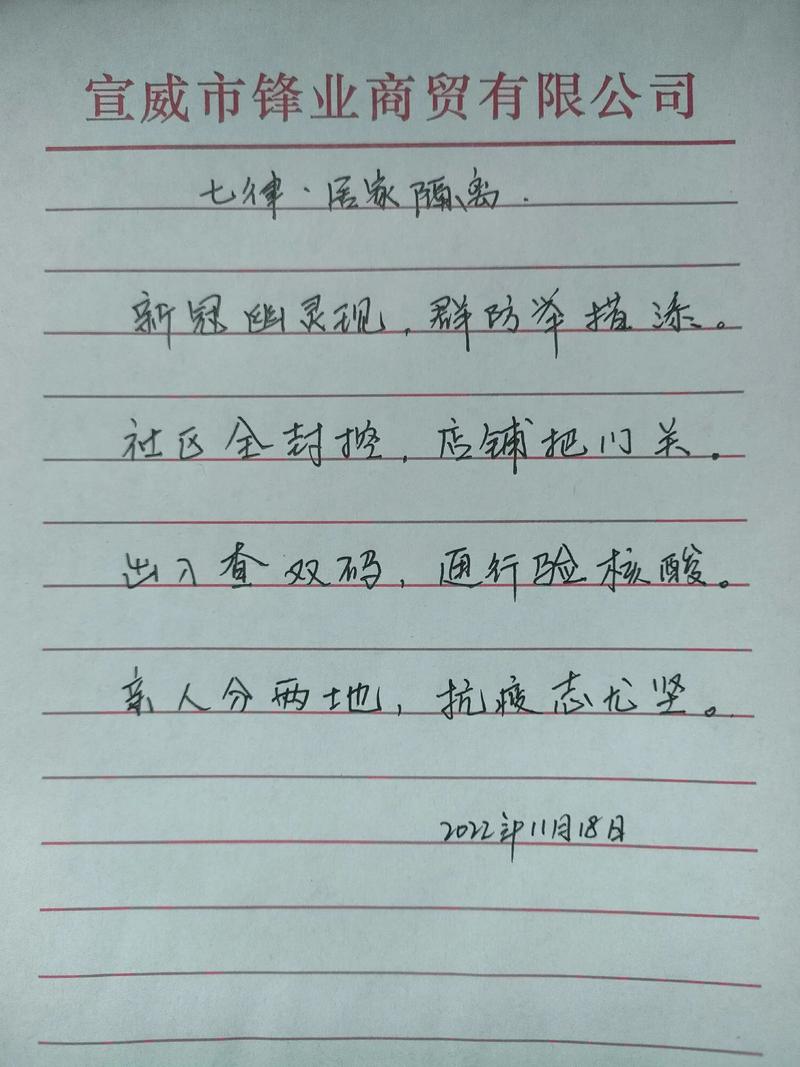 宣威市锋业商贸有限公司
七律·居家隔离.
新冠幽灵现，群防举措添。
社区全封控，店铺把门关.
出入查双码，通行验核酸。
亲人分两地，抗疫志尤坚。
2022年11月18日